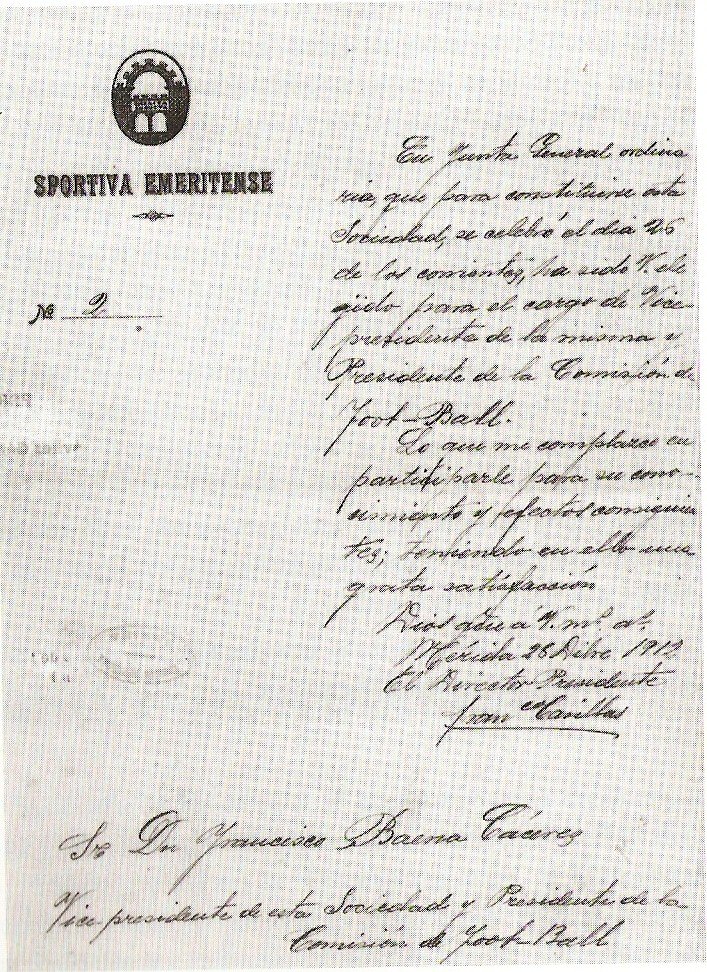 SPORTIVA EMERITENSE
Nº 2
En Junta General ordina
ria, que para constituirse esta
Sociedad, se celebró el dia 26
de los corrientes, ha sido V. ele
gido para el cargo de Vice-
presidente de la misma y
Presidente de la Comisión de
Foot-Ball.
Lo que me complazco en
participarle para su cono-
cimiento y efectos consiguien
tes; teniendo en ello una
grata satisfacción
Dios gûe á V. mˢ aˢ.
Mérida 28 Dibre 1912
El Director Presidente
Franᶜᵒ
Sr Dn Francisco Baena Cáceres
Vice-presidente de esta Sociedad y Presidente de la
Comisión de Foot-Ball